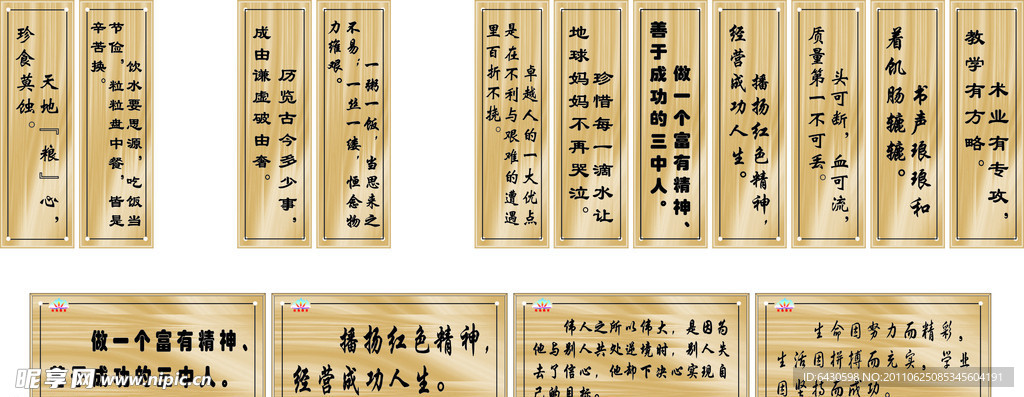 天地『粮』心，
珍食莫蚀。
饮水要思源，吃饭当
节俭，粒粒盘中餐，皆是
辛苦换。
历览古今多少事，
成由谦虚破由奢。
一粥一饭，当思来之
不易；一丝一缕，恒念物
力维艰。
卓越人的一大优点
是在不利与艰难的遭遇
里百折不挠。
珍惜每一滴水让
地球妈妈不再哭泣。
做一个富有精神、
善于成功的三中人。
播扬红色精神，
经营成功人生。
头可断，血可流，
质量第一不可丢。
书声琅琅和
着饥肠辘辘。
术业有专攻，
教学有方略。
做一个富有精神、
善于成功的三中人。
播扬红色精神，
经营成功人生。
伟人之所以伟大，是因为
他与别人共处逆境时，别人失
去了信心，他却下决心实现自
己的目标。
生命因努力而精彩，
生活因拼搏而充实，学业
因坚持而成功。
昵享网 www.nipic.cn
ID:6430598 NO:20110625085345604191